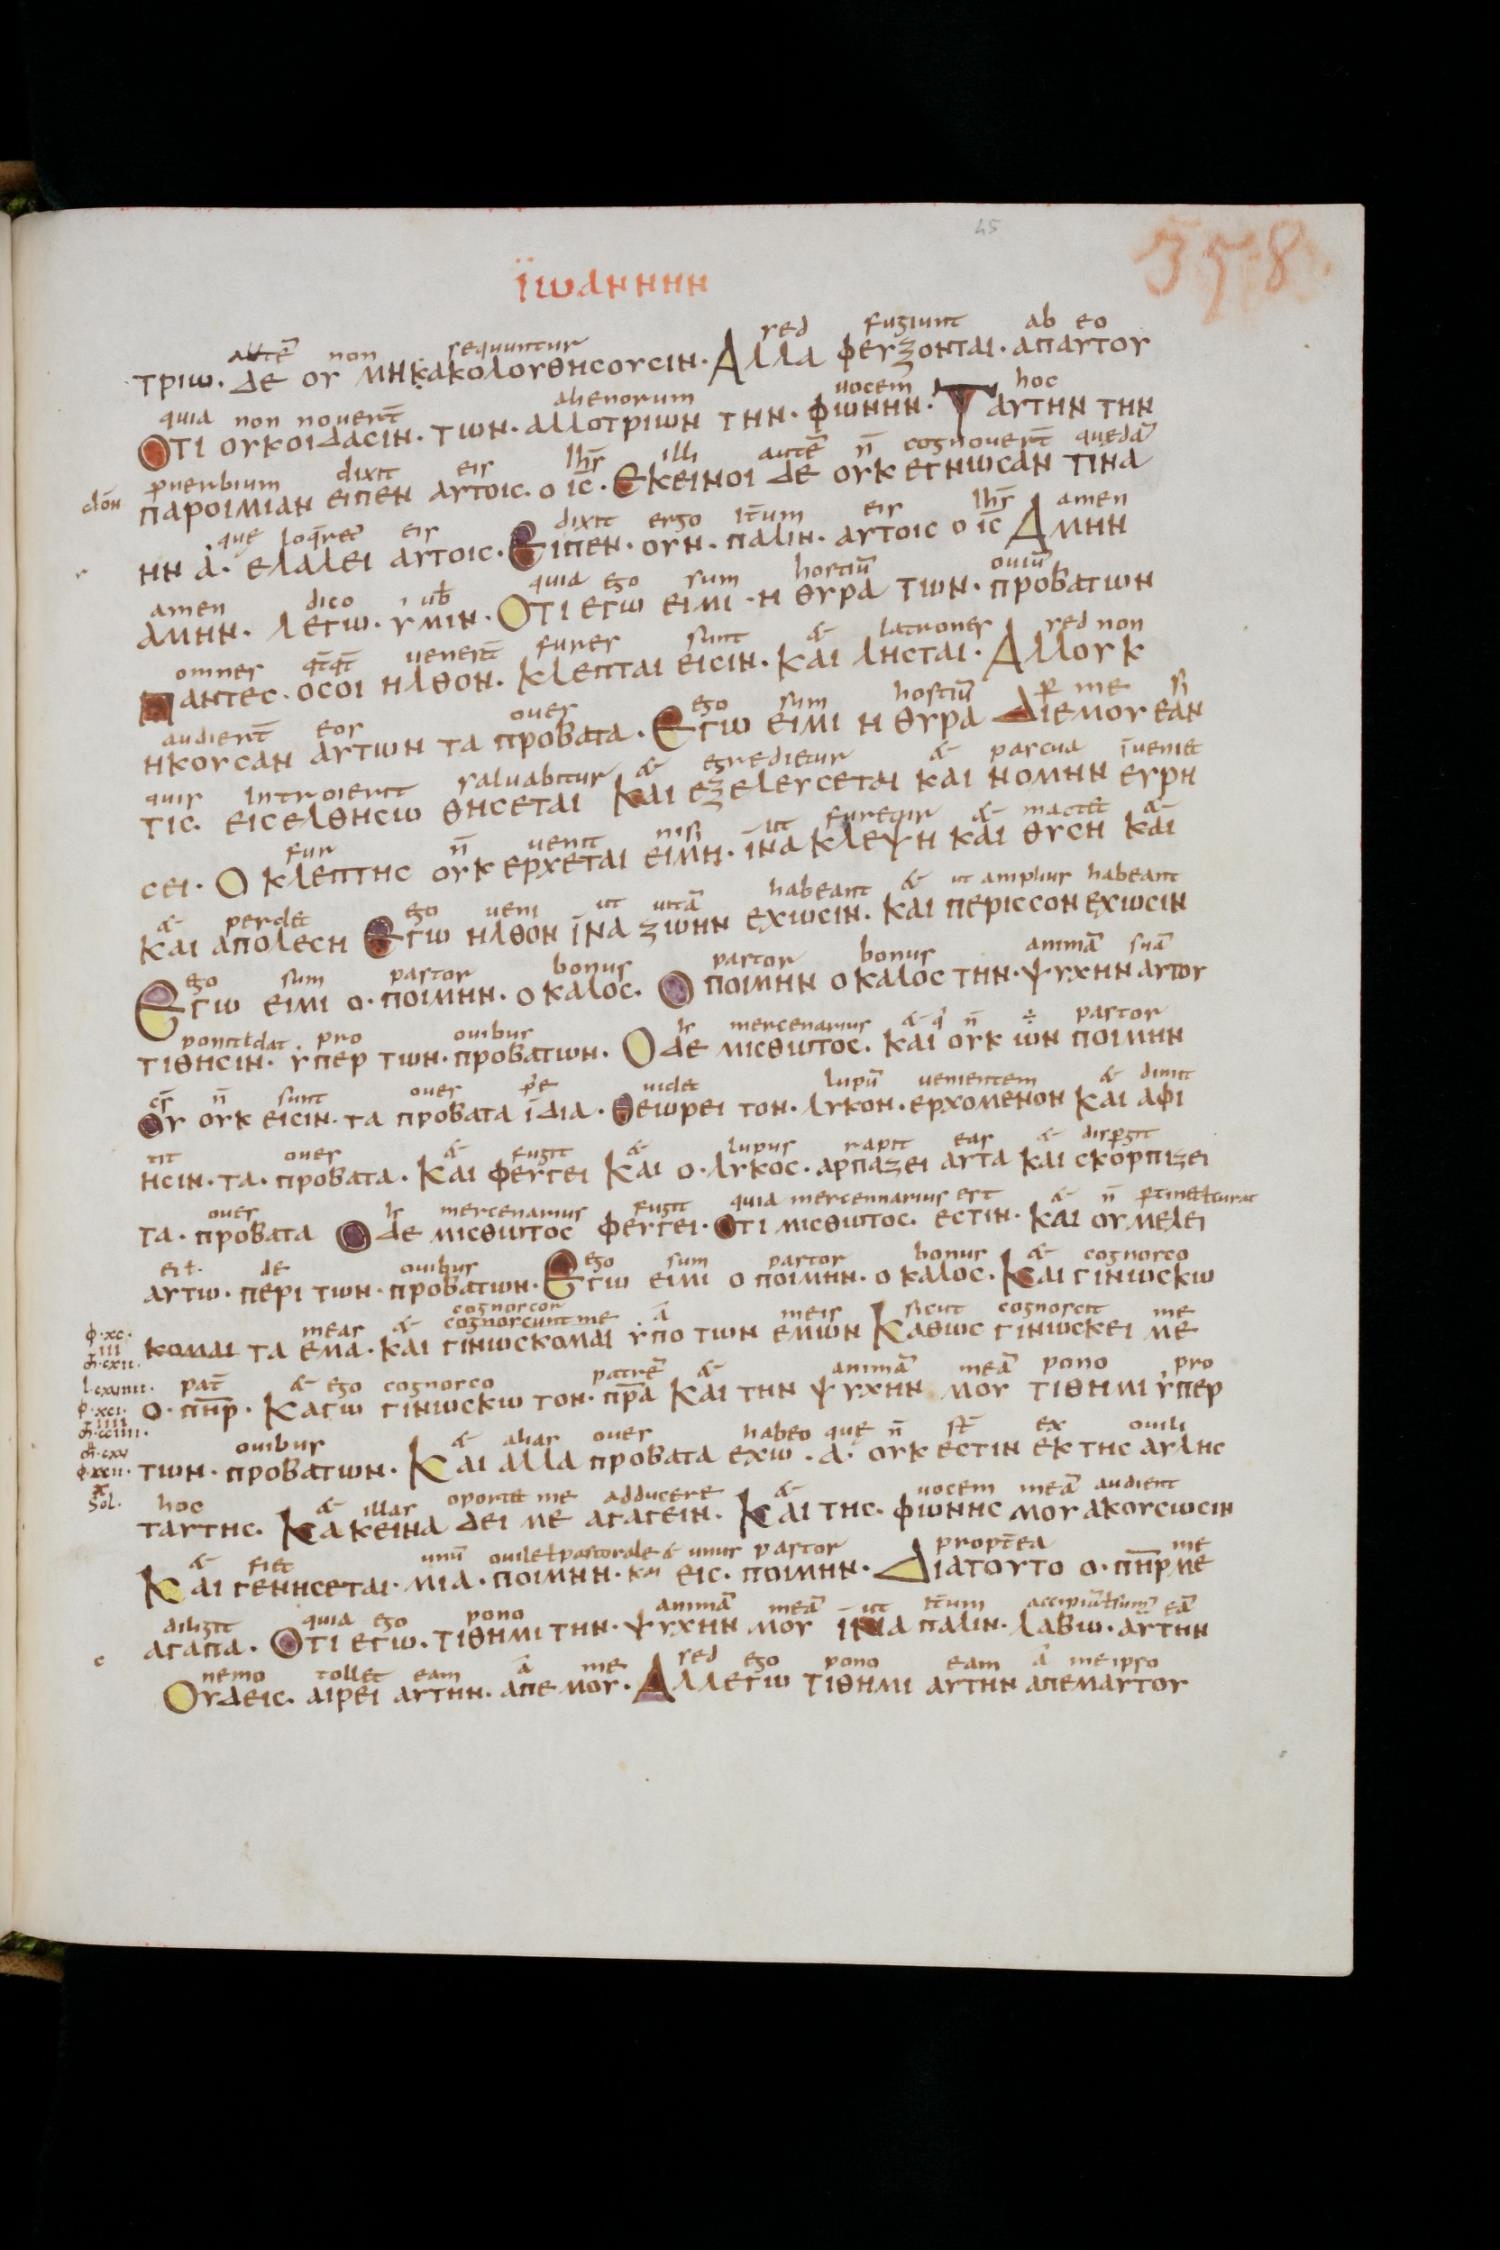 45
358
ϊωαнннн
autē non sequuntur sed fugiunt ab eo
τριω· Δε ου μηκακολουθησουσιν· Αλλα φευξονται· απαυτου
quia non novert̄ alienorum vocem hoc
Οτι ουκοιδασιν· των· αλλοτριων την· φωνην· Ταυτην την
ꝓverbium dixit eis ih̄s illi autē n̄ cognovert̄ quedā
παροιμιαν ειπεν αυτοις· ο ις̄· Εκεινοι δε ουκ εγνωσαν τινα
que loq̄ret̄ eis dixit ergo it̄um eis ih̄s amen
ην ἁ· ελαλει αυτοις· Ειπεν· ουν· παλιν· αυτοις ο ις̄ Αμην
amen dico vƀ quia ego sum hostiū oviū
αμην· λεγω· υμιν· Οτι εγω ειμι· η θυρα των· προβατων
omnes qt̄qt̄ venert̄ fures sunt & latrones sed non
Παντες· οσοι ηλθον· Κλεπται εισιν· Και λησται· Αλλουκ
audiert̄ eos oves ego sum hostiū ꝑ me si
ηκουσαν αυτων τα προβατα· Εγω ειμι η θυρα Διεμου εαν
quis introierit salvabitur & egredietur & pascua īveniet
τις· εισελθησω θησεται Και εξελευσεται και νομην ευρη
fur n̄ venit nisi ut furetur & mactet &
σει· Ο κλεπτης ουκ ερχεται ειμη· ϊνα κλεψη και θυση και
& perdet ego veni ut vitā habeant & ut amplius habeant
και απολεση Εγω ηλθον ϊνα ζωην εχωσιν· Και περισσον εχωσιν
Ego sum pastor bonus pastor bonus animā suā
Εγω ειμι ο· ποιμην· ο καλος· Ο ποιμην ο καλος την· ψυχην αυτου
ponit ɫ dat pro ovibus mercenarius & q̇ n̄ ÷ pastor
τιθησιν· υπερ των· προβατων· Ο δε μισθωτος· και ουκ ων ποιμην
n̄ sunt oves videt lupū venientem & dimit
Ου ουκ εισιν· τα προβατα ϊδια· Θεωρει τον· λυκον· ερχομενον και αφι
tit oves & fugit & lupus rapit eas & disꝑgit
ησιν· τα· προβατα· Και φευγει Και ο· λυκος· αρπαζει αυτα και σκορπιζει
oves mercenarius fugit quia mercennarius est & n̄ ꝑtinet ɫ curat
τα· προβατα Ο δε μισθωτος φευγει· Οτι μισθωτος· εστιν· και ουμελει
de ovibus ego sum pastor bonus & cognosco
αυτω· περι των· προβατων· Εγω ειμι ο ποιμην· ο καλος· Και γινωσκω
cognoscor
meas & cognoscunt me a meis sicut cognoscit me
κομαι τα εμα· και γινωσκομαι υπο των εμων Καθως γινωσκει με
pat̄ & ego cognosco patrē & animā meā pono pro
ο· πη̄ρ· Καγω γινωσκω τον· πρ̄α Και την ψυχην μου τιθημι υπερ
ovibus & alias oves habeo que n̄ st̄ ex ovili
των· προβατων· Και αλλα προβατα εχω· ἁ· ουκ εστιν εκ της αυλης
hoc & illas oportet me adducere & vocem meā audient
ταυτης· Κακεινα δει με αγαγειν· Και της· φωνης μου ακουσωσιν
& fiet unū ovile ɫ pastorale & unus pastor propt̄ea me
Και γενησεται· μια· ποιμνη· και εις· ποιμην· Διατουτο ο· πη̄ρ με
diligit quia ego pono animā meā ut it̄um eā
αγαπα· Οτι εγω· τιθημι την· ψυχην μου ϊνα παλιν· λαβω· αυτην
nemo tollet eam a me sed ego pono eam a meipso
Ουδεις· αιρει αυτην· απεμου· Αλλεγω τιθημι αυτην απεμαυτου